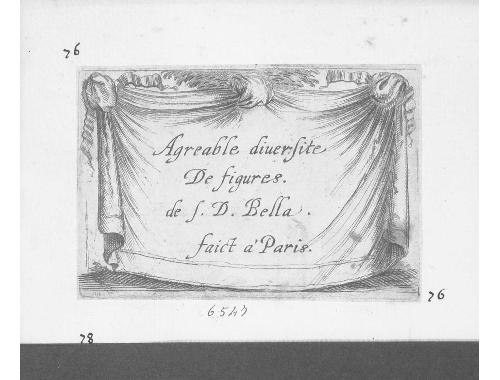 76
Agreable diuersite
De figures.
de S. D. Bella.
faict a Paris.
76
6547
78